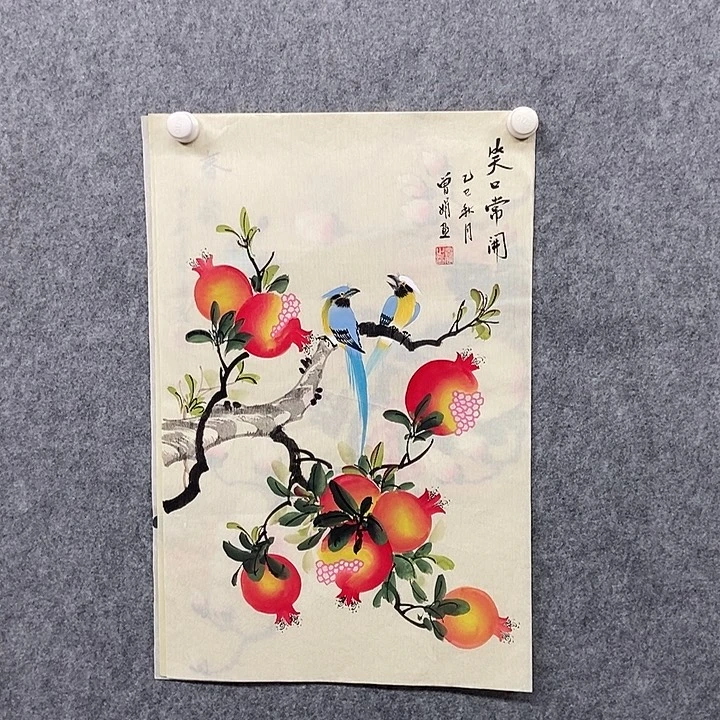 笑口常開
乙巳秋月
曾娟画